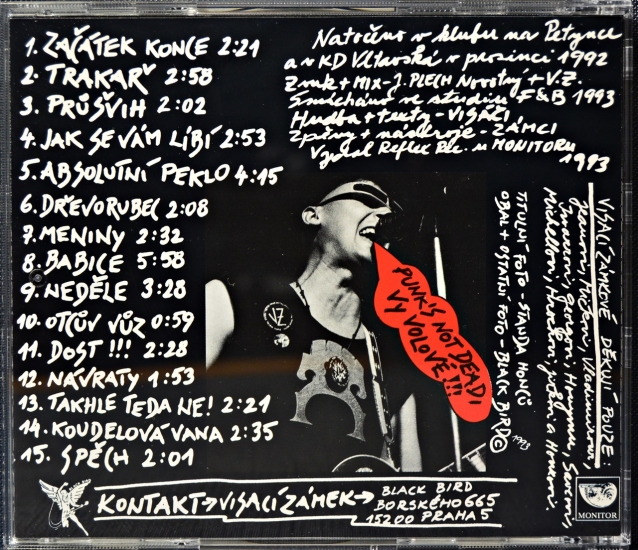 1. ZAČÁTEK KONCE 2:21
2. TRAKAŘ 2:58
3. PRŮŠVIH 2:02
4. JAK SE VÁM LÍBÍ 2:53
5. ABSOLUTNÍ PEKLO 4:15
6. DŘEVORUBEC 2:08
7. MENINY 2:32
8. BABICE 5:58
9. NEDĚLE 3:28
10. OTCŮV VŮZ 0:59
11. DOST!!! 2:28
12. NÁVRATY 1:53
13. TAKHLE TEDA NE! 2:21
14. KOUDELOVÁ VANA 2:35
15. SPĚCH 2:01
Natočeno v klubu na Petynce
a v KD Vltavská v prosinci 1992
Zvuk + MIX - J. PLECH Novotný + V.Z.
Smícháno ve studiu F&B 1993
Hudba + texty - VISACÍ
Zpěvy + nástroje - ZÁMCI
Vydal Reflex Rec. u MONITORU
1993
PUNK'S NOT DEAD!
VY VOLOVÉ!!!
VZ
TITULNÍ FOTO - STANDA HONCŮ
OBAL + OSTATNÍ FOTO - BLACK BIRD ©
1993
VISACÍ ZÁMKOVÉ DĚKUJÍ POUZE:
KONTAKT → VISACÍ ZÁMEK →
BLACK BIRD
BORSKÉHO 665
15200 PRAHA 5
MONITOR